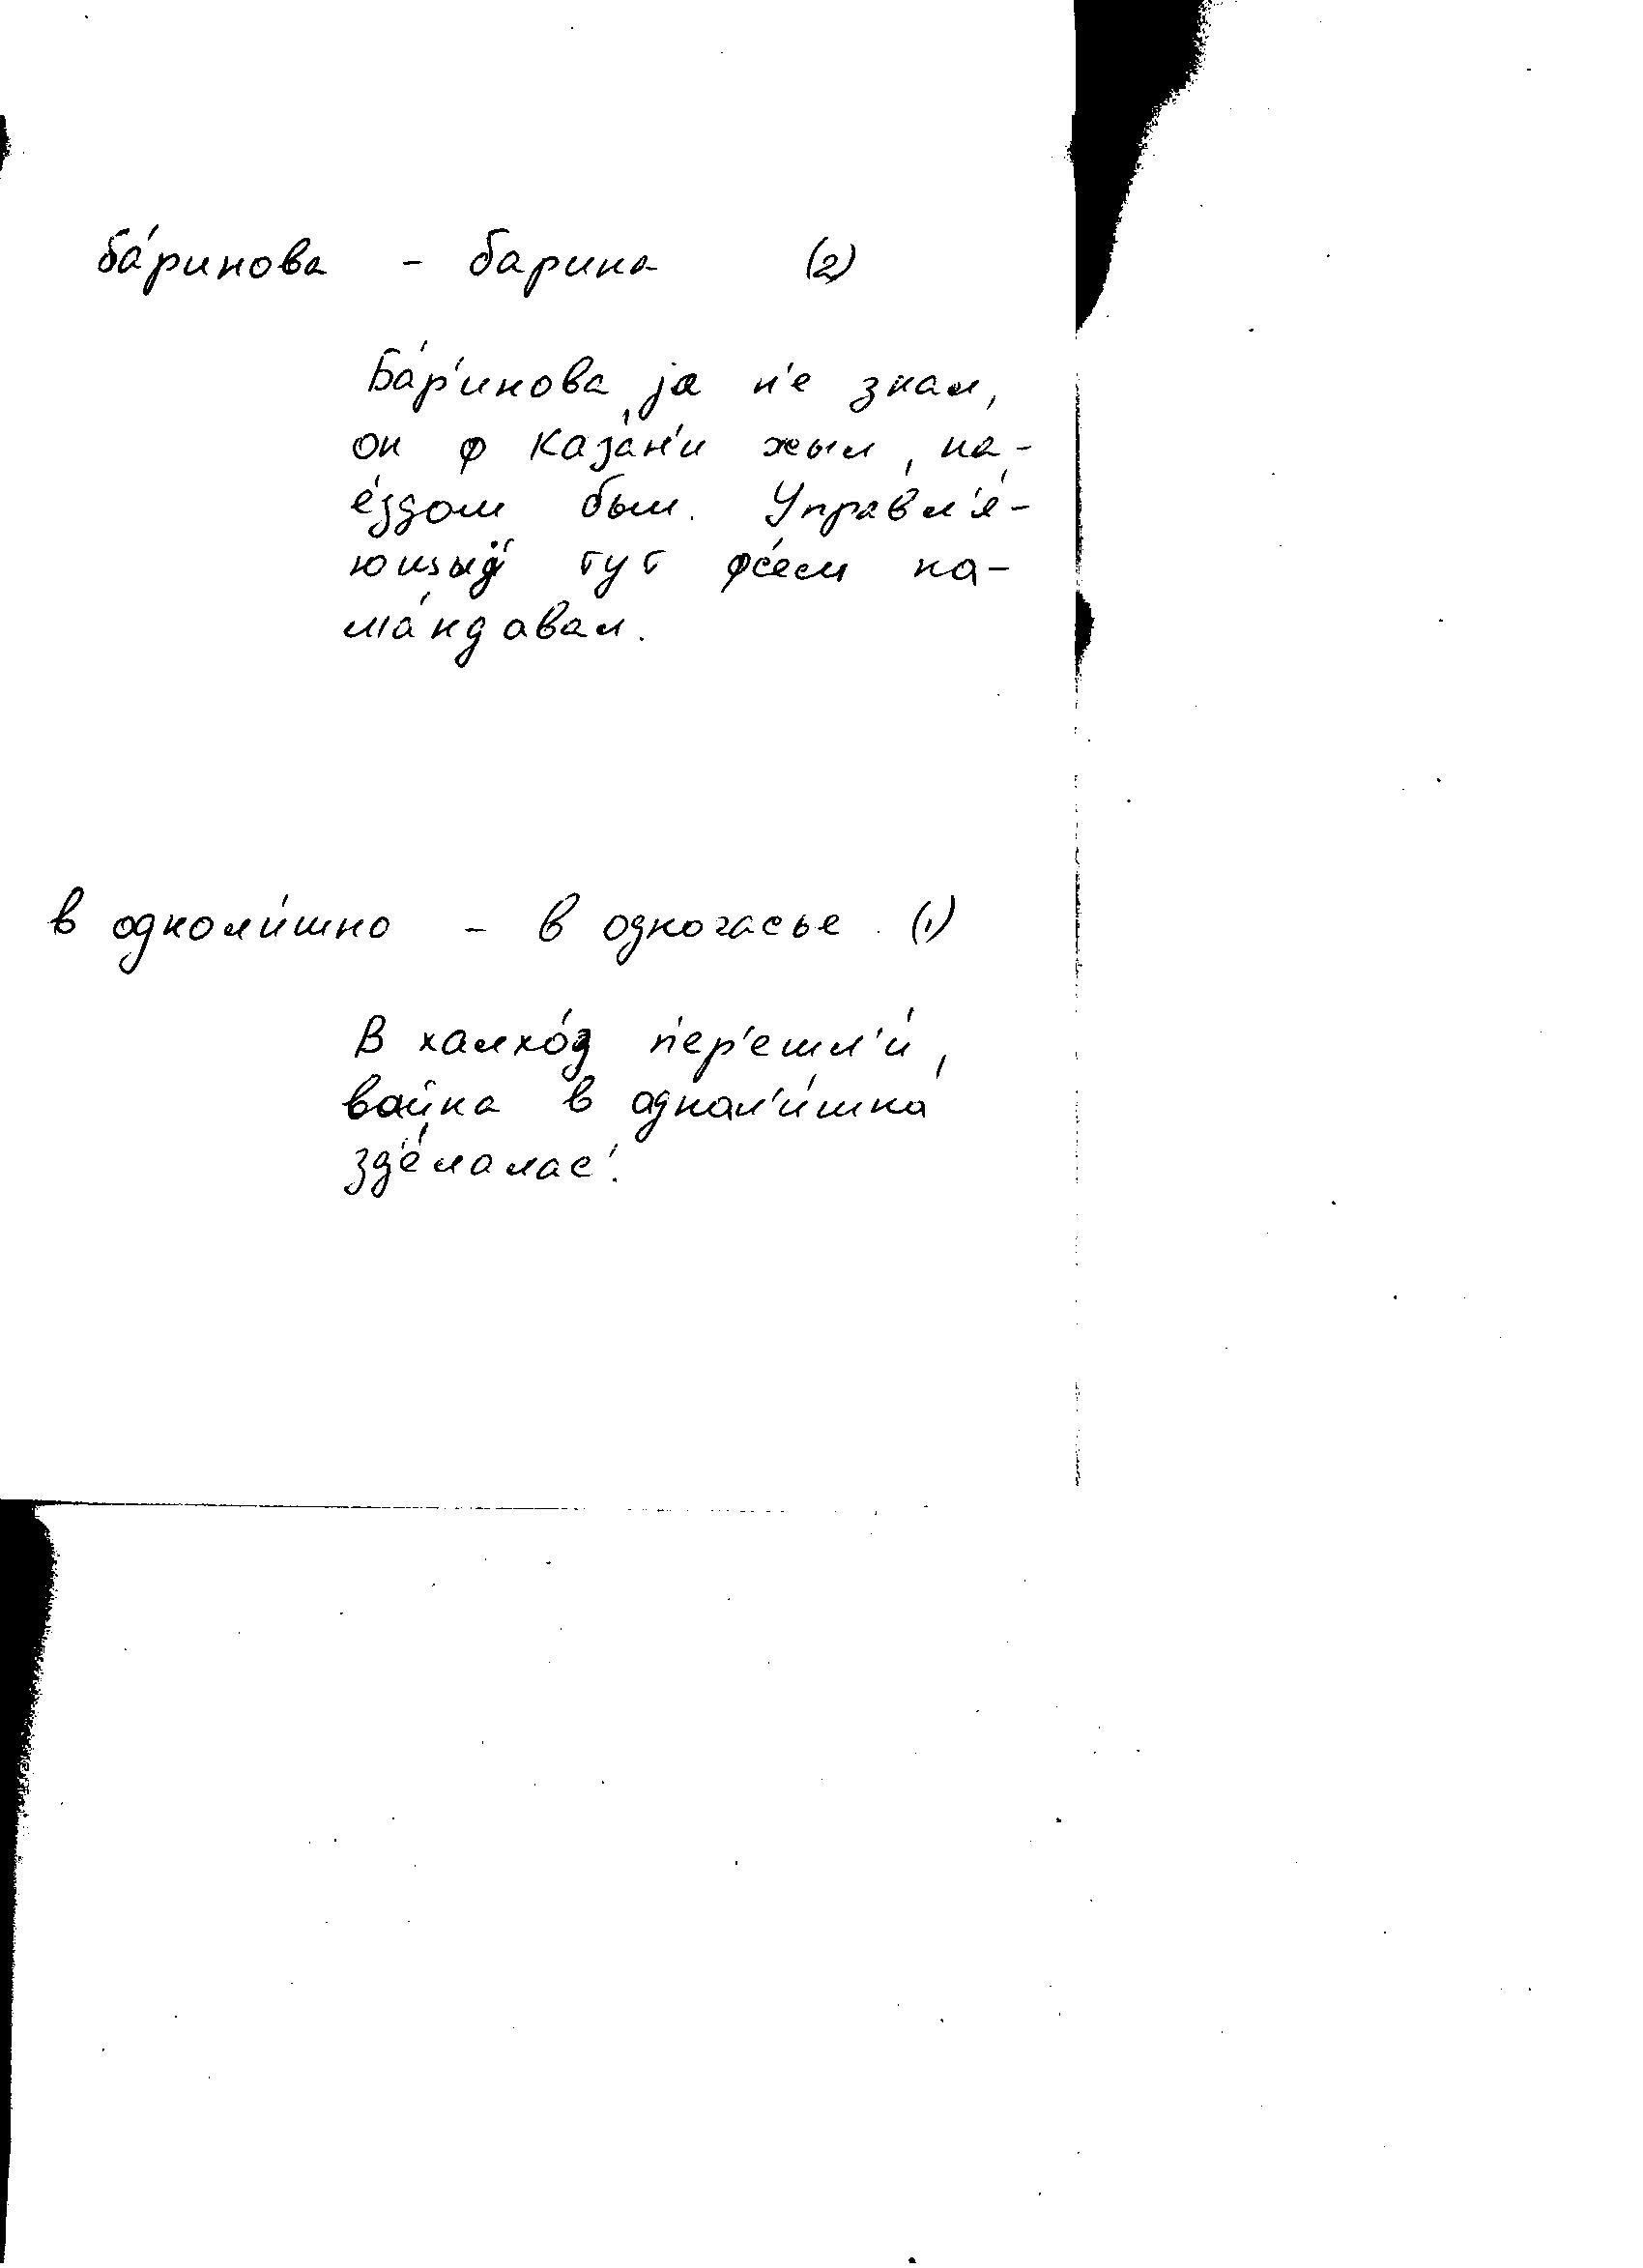 ба́ринова - барина (2)
Ба́р'инова ја н'е знал,
он ф Каза́н'и жыл, на-
е́здом был. Управл'а́-
ющый тут фс'ем ка-
ма́ндавал.
в одноли́шно - в одночасье. (1)
В халхо́з п'ер'ешл'и́,
вайна́ в аднал'и́шна
зд'е́лалас'.